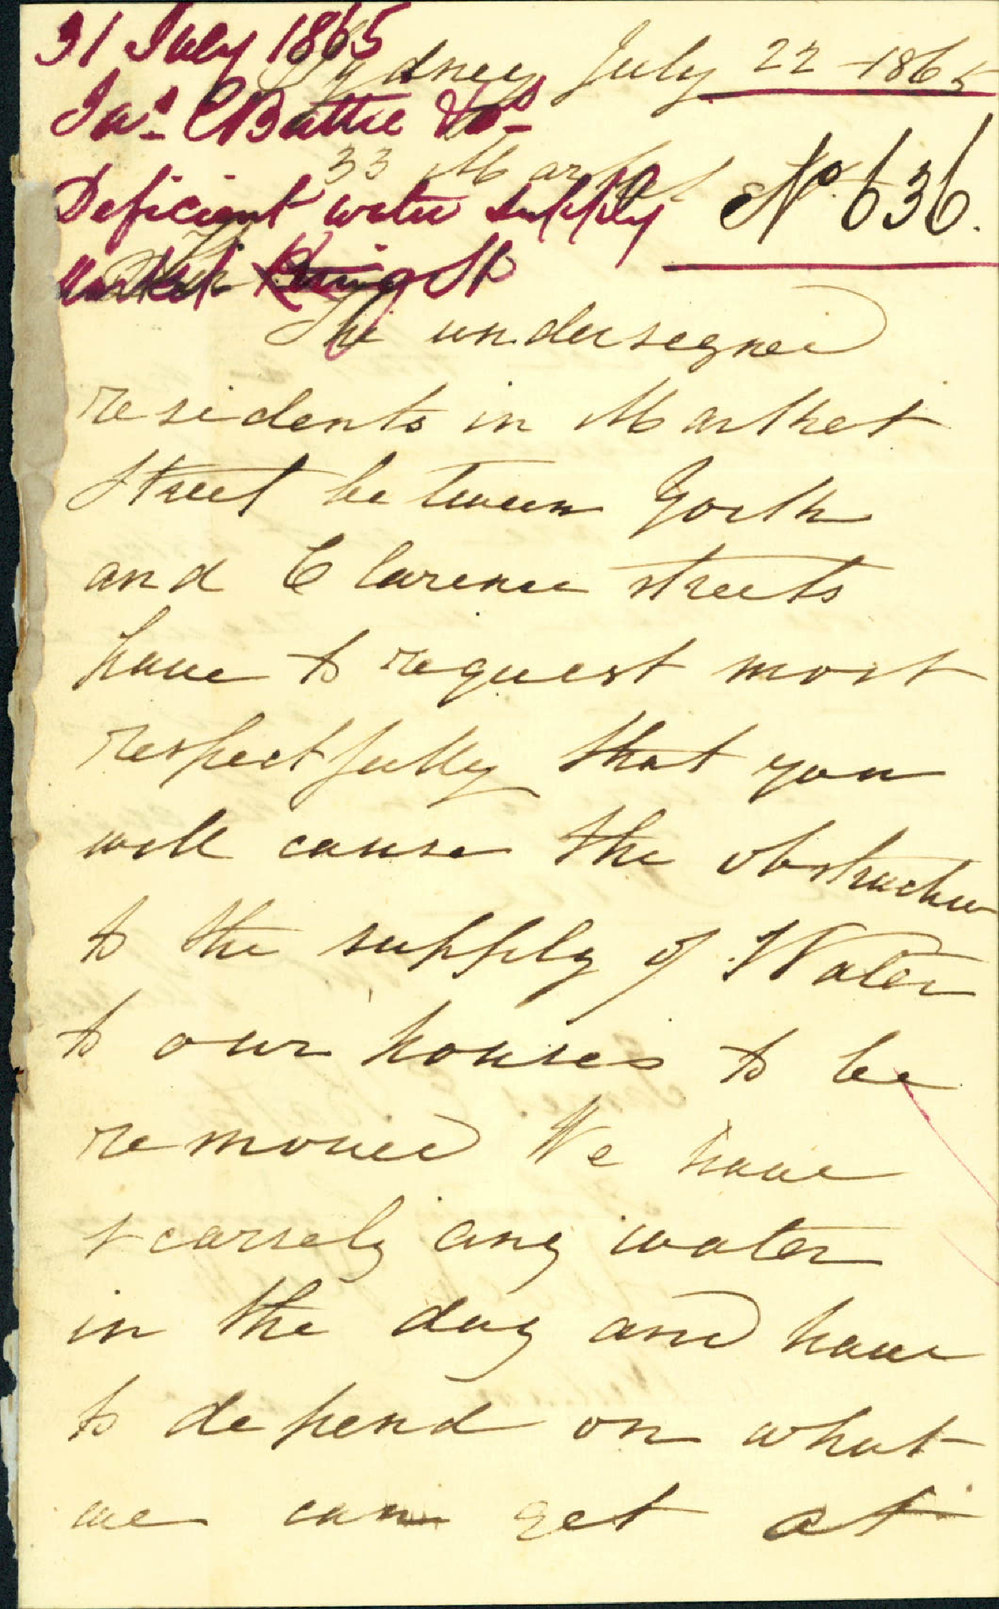 31 July 1865
Sydney July 22 - 1865
Jas. C Battie &Os
33 Market St
Deficient water supply
No. 636.
Market King St
The undersegned
residents in Market
Street between York
and Clarence streets
have to request most
respectfully that you
will cause the obstruction
to the supply of Water
to our houses to be
removed We have
scarsely any water
in the day and have
to depend on what
we can get at